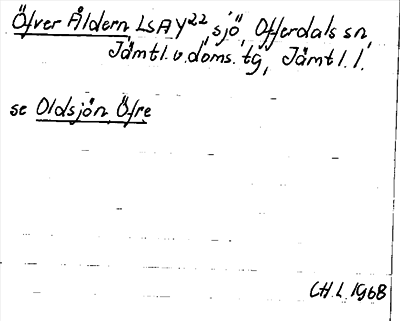 Öfver Åldern LSAY²², sjö, Offerdals sn,
Jämtl. v. doms. tg, Jämtl. l.
se Oldsjön, Öfre
CH. L. 1968